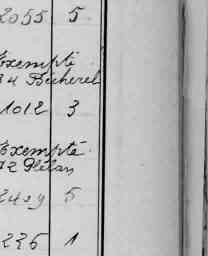 2055 5
Exempté
34 Bécherel
1012 3
Exempté
12 Plélan
2429 5
226 1